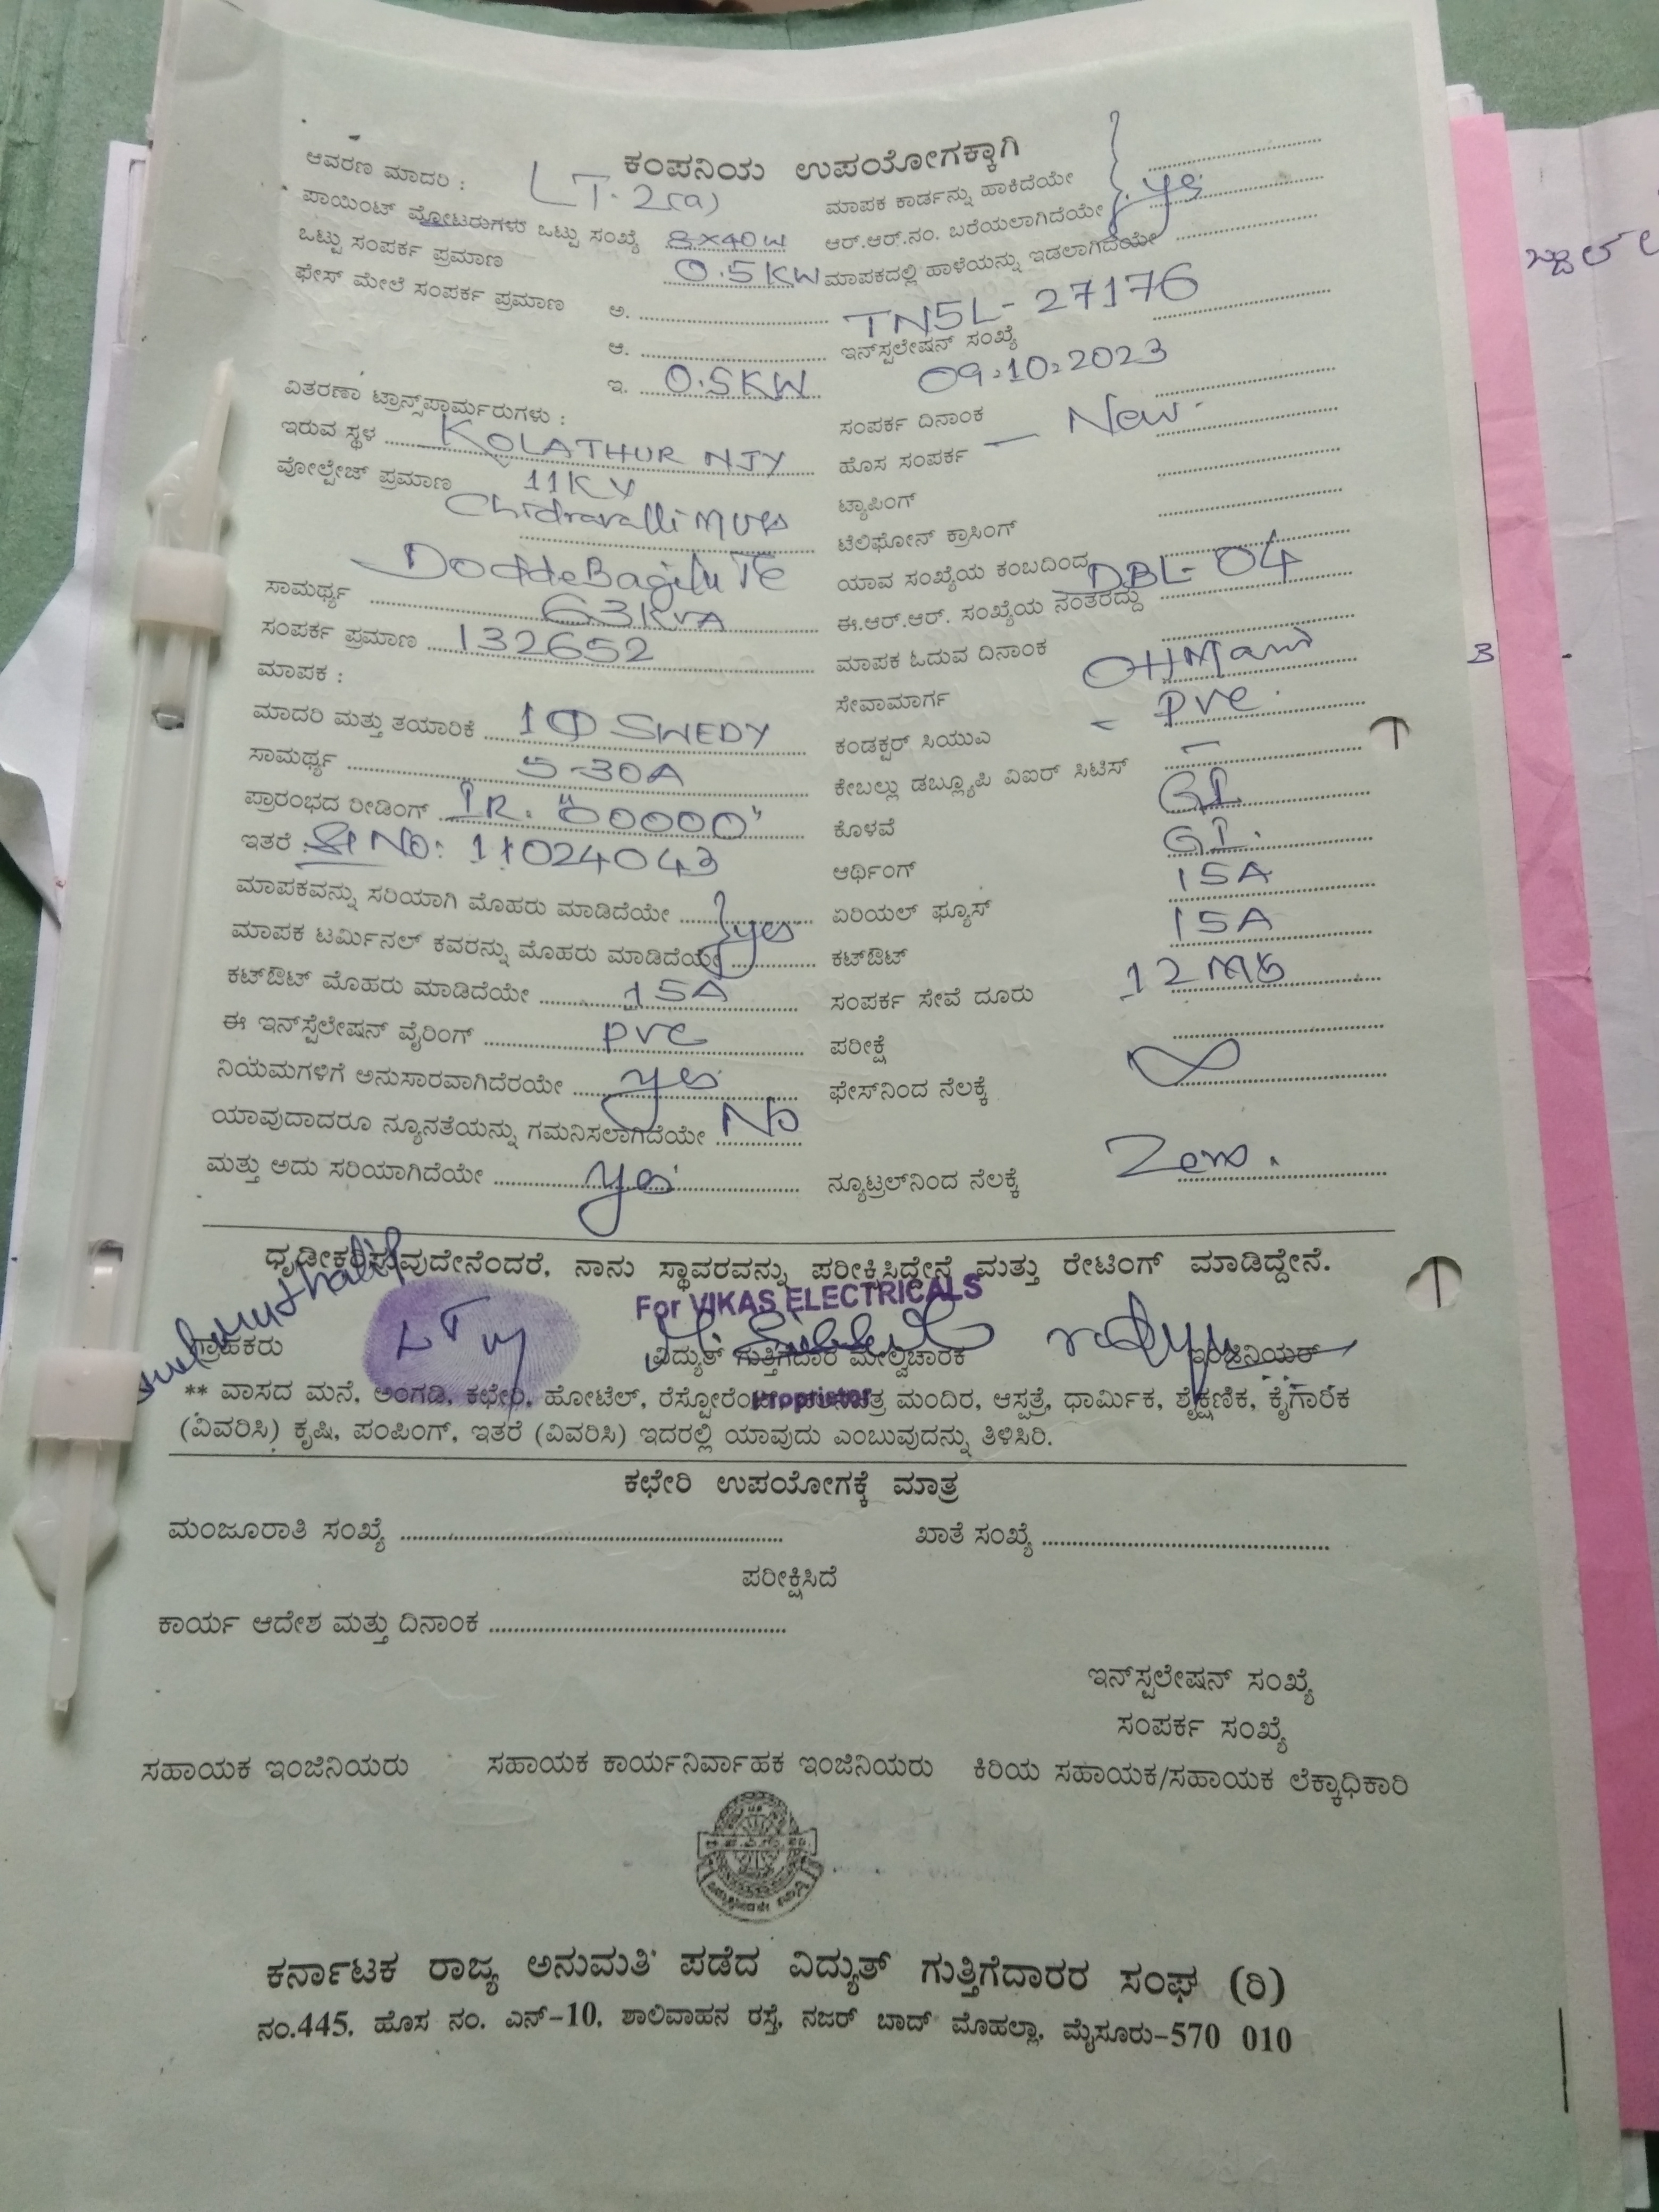 ಕಂಪನಿಯ ಉಪಯೋಗಕ್ಕಾಗಿ
ಆವರಣ ಮಾದರಿ : LT-2(a)
ಪಾಯಿಂಟ್ ಮೋಟರುಗಳು ಒಟ್ಟು ಸಂಖ್ಯೆ 8X40W
ಒಟ್ಟು ಸಂಪರ್ಕ ಪ್ರಮಾಣ 0.5KW
ಫೇಸ್ ಮೇಲೆ ಸಂಪರ್ಕ ಪ್ರಮಾಣ ಅ.
ಆ.
ಇ. 0.5KW
ವಿತರಣಾ ಟ್ರಾನ್ಸ್‌ಫಾರ್ಮರುಗಳು :
ಇರುವ ಸ್ಥಳ KOLATHUR NJY
ವೋಲ್ಟೇಜ್ ಪ್ರಮಾಣ 11KV
Chidravalli MUSS
DoddeBagilu TC
ಸಾಮರ್ಥ್ಯ 63KVA
ಸಂಪರ್ಕ ಪ್ರಮಾಣ 132652
ಮಾಪಕ :
ಮಾದರಿ ಮತ್ತು ತಯಾರಿಕೆ 1Φ SWEDY
ಸಾಮರ್ಥ್ಯ 5-30A
ಪ್ರಾರಂಭದ ರೀಡಿಂಗ್ IR. "00000"
ಇತರೆ Sl No: 11024043
ಮಾಪಕವನ್ನು ಸರಿಯಾಗಿ ಮೊಹರು ಮಾಡಿದೆಯೇ } yes
ಮಾಪಕ ಟರ್ಮಿನಲ್ ಕವರನ್ನು ಮೊಹರು ಮಾಡಿದೆಯೇ
ಕಟ್‌ಔಟ್ ಮೊಹರು ಮಾಡಿದೆಯೇ 15A
ಈ ಇನ್‌ಸ್ಟೆಲೇಷನ್ ವೈರಿಂಗ್ PVC
ನಿಯಮಗಳಿಗೆ ಅನುಸಾರವಾಗಿದೆರಯೇ yes
ಯಾವುದಾದರೂ ನ್ಯೂನತೆಯನ್ನು ಗಮನಿಸಲಾಗಿದೆಯೇ No
ಮತ್ತು ಅದು ಸರಿಯಾಗಿದೆಯೇ yes
ಮಾಪಕ ಕಾರ್ಡನ್ನು ಹಾಕಿದೆಯೇ
ಆರ್.ಆರ್.ನಂ. ಬರೆಯಲಾಗಿದೆಯೇ } yes
ಮಾಪಕದಲ್ಲಿ ಹಾಳೆಯನ್ನು ಇಡಲಾಗಿದೆಯೇ
TN5L-27176
ಇನ್‌ಸ್ಟಲೇಷನ್ ಸಂಖ್ಯೆ
09.10.2023
ಸಂಪರ್ಕ ದಿನಾಂಕ
ಹೊಸ ಸಂಪರ್ಕ — New
ಟ್ಯಾಪಿಂಗ್
ಟೆಲಿಫೋನ್ ಕ್ರಾಸಿಂಗ್
ಯಾವ ಸಂಖ್ಯೆಯ ಕಂಬದಿಂದ DBL-04
ಈ.ಆರ್.ಆರ್. ಸಂಖ್ಯೆಯ ನಂತರದ್ದು
ಮಾಪಕ ಓದುವ ದಿನಾಂಕ
ಸೇವಾಮಾರ್ಗ OH
ಕಂಡಕ್ಟರ್ ಸಿಯುಎ - PVC
ಕೇಬಲ್ಲು ಡಬ್ಲ್ಯೂಪಿ ವಿಐರ್ ಸಿಟಿಸ್ —
ಕೊಳವೆ GI
ಆರ್ಥಿಂಗ್ GI
ಏರಿಯಲ್ ಫ್ಯೂಸ್ 15A
ಕಟ್‌ಔಟ್ 15A
ಸಂಪರ್ಕ ಸೇವೆ ದೂರು 12 Mts
ಪರೀಕ್ಷೆ
ಫೇಸ್‌ನಿಂದ ನೆಲಕ್ಕೆ ∞
ನ್ಯೂಟ್ರಲ್‌ನಿಂದ ನೆಲಕ್ಕೆ Zero.
ಧೃಡೀಕರಿಸುವುದೇನೆಂದರೆ, ನಾನು ಸ್ಥಾವರವನ್ನು ಪರೀಕ್ಷಿಸಿದ್ದೇನೆ ಮತ್ತು ರೇಟಿಂಗ್ ಮಾಡಿದ್ದೇನೆ.
For VIKAS ELECTRICALS
LTM
ಗ್ರಾಹಕರು ವಿದ್ಯುತ್ ಗುತ್ತಿಗೆದಾರ ಮೇಲ್ವಿಚಾರಕ ಇಂಜಿನಿಯರ್
Propristor
** ವಾಸದ ಮನೆ, ಅಂಗಡಿ, ಕಛೇರಿ, ಹೋಟೆಲ್, ಮಂದಿರ, ಆಸ್ಪತ್ರೆ, ಧಾರ್ಮಿಕ, ಶೈಕ್ಷಣಿಕ, ಕೈಗಾರಿಕ
(ವಿವರಿಸಿ) ಕೃಷಿ, ಪಂಪಿಂಗ್, ಇತರೆ (ವಿವರಿಸಿ) ಇದರಲ್ಲಿ ಯಾವುದು ಎಂಬುವುದನ್ನು ತಿಳಿಸಿರಿ.
ಕಛೇರಿ ಉಪಯೋಗಕ್ಕೆ ಮಾತ್ರ
ಮಂಜೂರಾತಿ ಸಂಖ್ಯೆ ಖಾತೆ ಸಂಖ್ಯೆ
ಪರೀಕ್ಷಿಸಿದೆ
ಕಾರ್ಯ ಆದೇಶ ಮತ್ತು ದಿನಾಂಕ
ಇನ್‌ಸ್ಟಲೇಷನ್ ಸಂಖ್ಯೆ
ಸಂಪರ್ಕ ಸಂಖ್ಯೆ
ಸಹಾಯಕ ಇಂಜಿನಿಯರು ಸಹಾಯಕ ಕಾರ್ಯನಿರ್ವಾಹಕ ಇಂಜಿನಿಯರು ಕಿರಿಯ ಸಹಾಯಕ/ಸಹಾಯಕ ಲೆಕ್ಕಾಧಿಕಾರಿ
ಕರ್ನಾಟಕ ರಾಜ್ಯ ಅನುಮತಿ ಪಡೆದ ವಿದ್ಯುತ್ ಗುತ್ತಿಗೆದಾರರ ಸಂಘ (ರಿ)
ನಂ.445, ಹೊಸ ನಂ. ಎನ್-10, ಶಾಲಿವಾಹನ ರಸ್ತೆ, ನಜರ್ ಬಾದ್ ಮೊಹಲ್ಲಾ, ಮೈಸೂರು-570 010